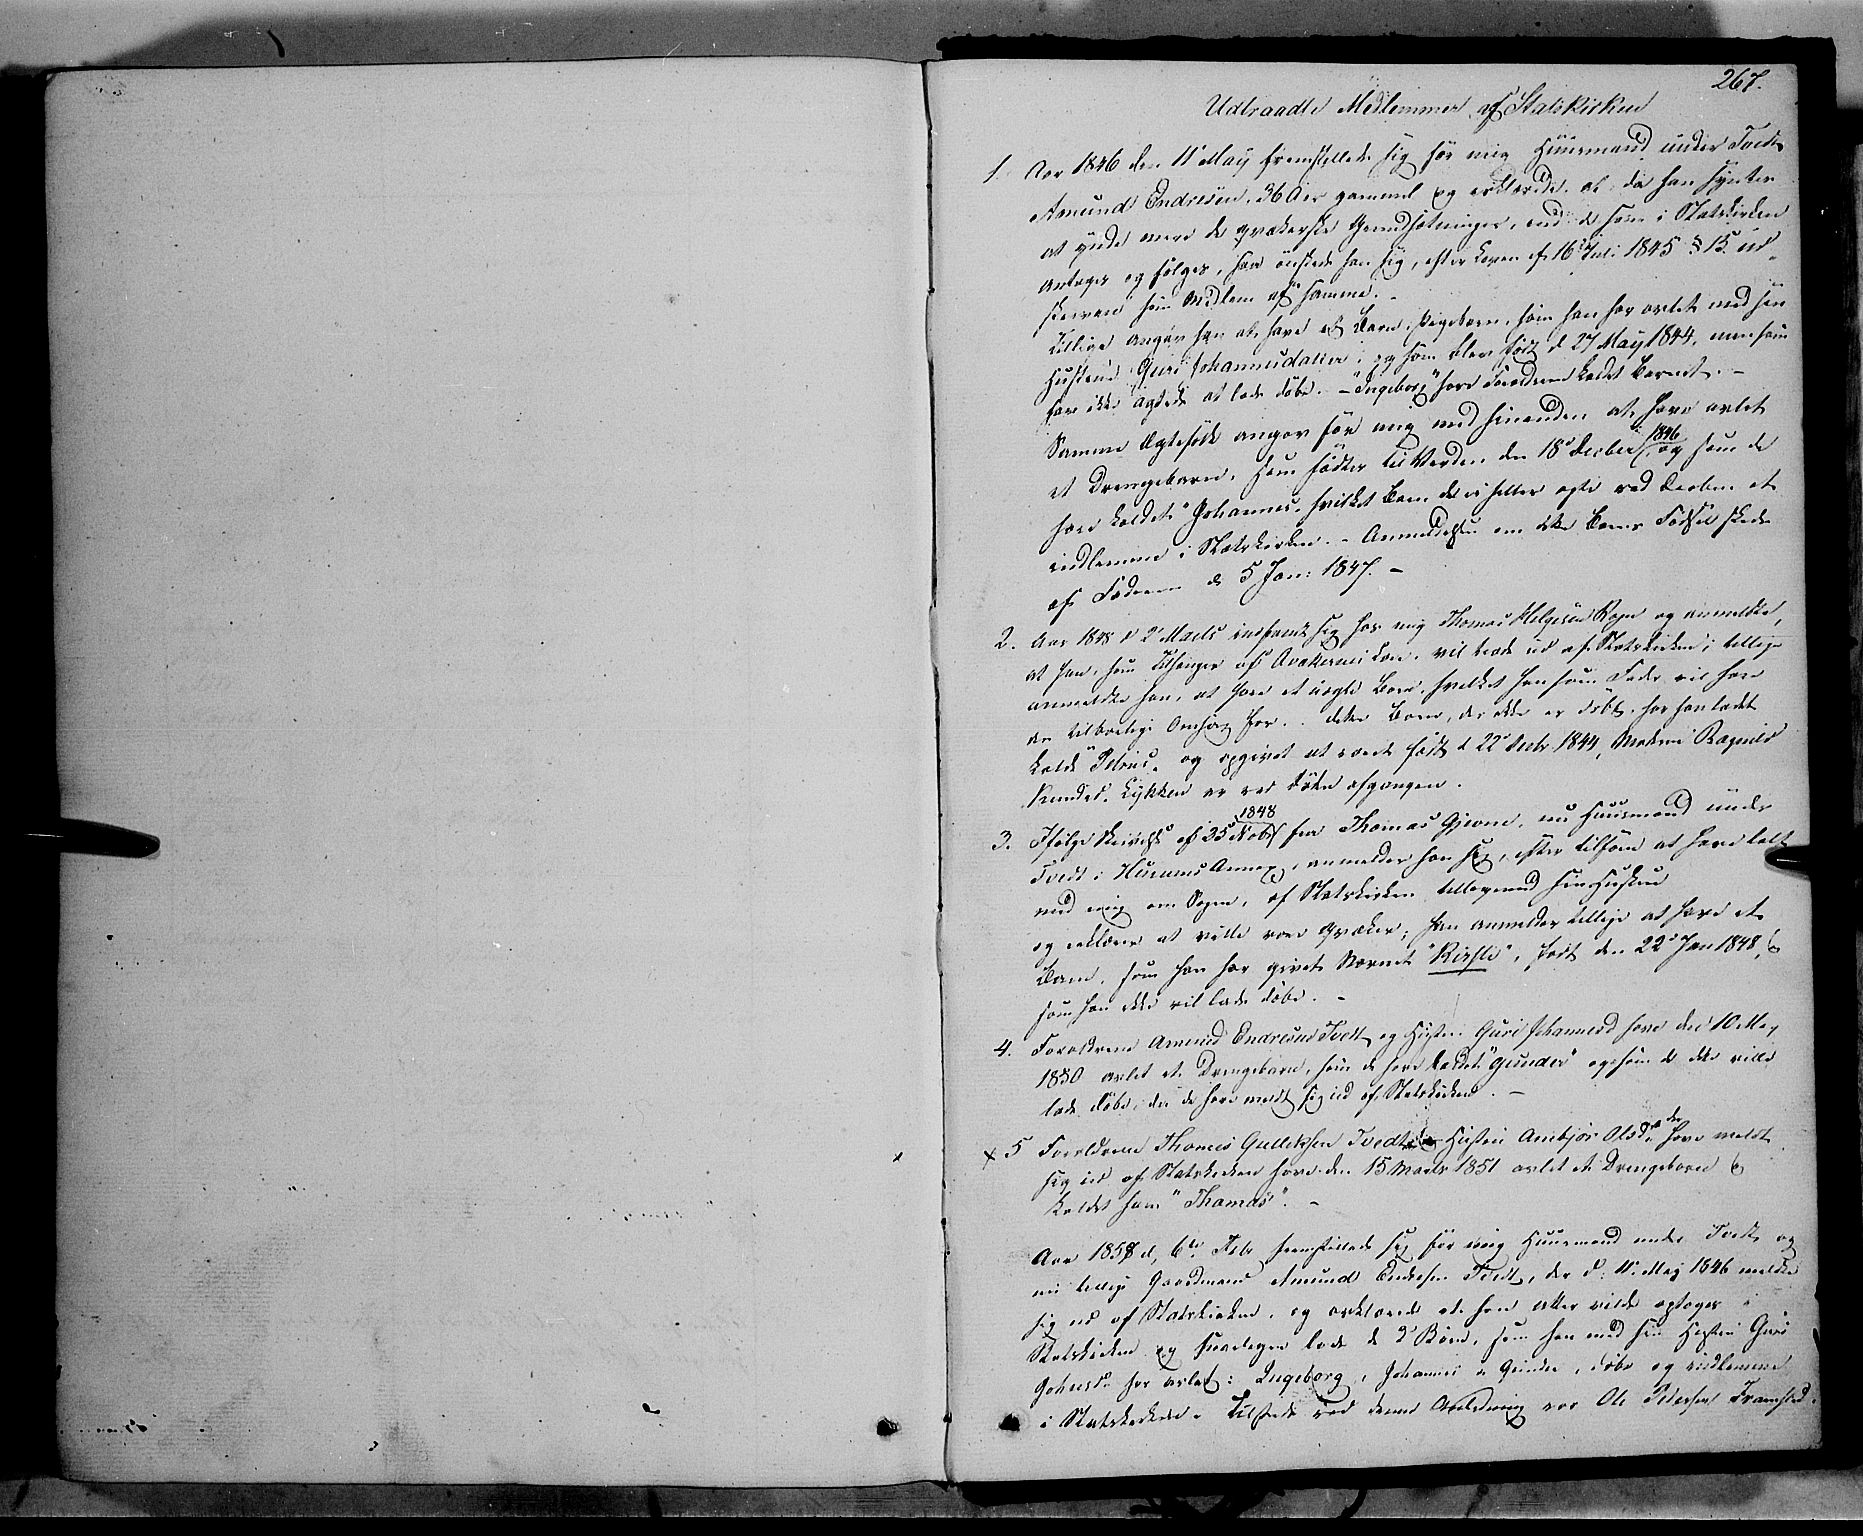 267.
Udtraadte Medlemmer af Statskirken
1. Aar 1846 den 11 May fremstillede sig for mig Huusmand under Tvedt
Amund Endresen, 36 Aar gammel og erklærede, at, da han synter
at ynde mere de qvækerske Grundsætninger, end de som i Statskirken
antages og følges, saa önskede han sig, efter Loven af 16 Juli 1845 § 15 ud-
skreven som Medlem af samme. -
Tillige angav han at have et Barn, Pigebarn, som han har avlet med sin
Hustrue Guri Johannesdatter, og som blev født d 27 May 1844, men som
han ikke agtede at lade døbe. - "Ingeborg" have Forældrene kaldet Barnet. -
Samme Ægtefolk angav for mig med hinanden at have avlet
et Drengebarn, som fødtes til Verden den 18 Decber 1846, og som de
have kaldet "Johannes", hvilket Barn de ei heller agte ved Daaben at
indlemme i Statskirken. - Anmeldelsen om dette Barns Fødsel skede
af Faderen d 5 Jan: 1847. -
2. Aar 1848 d 2 Marts indfandt sig hos mig Thomas Helgesen Rogn og anmeldte,
at han, som Tilhænger af Qvækernes Lære, vil træde ud af Statskirken; tillige
anmeldte han, at have et uægte Barn, hvilket han som Fader vil have
en tilbørlig Omsorg for. . dette Barn, der ikke er døbt, har han ladet
kalde "Petrine" og opgivet at være født d 22 Decbr 1844, Moderen Ragnild
Knudsd. Lykken er ved Døden afgangen.
3. Ifølge Skrivelse af 25 Novbr 1848 fra Thomas Gjerne, nu Huusmand under
Tvedt i Hurums Annex, anmelder han sig, efter tilforn at have talt
med mig om Sagen, af Statskirken tilligemed sin Hustrue
og erklærer at ville være Qvæker; han anmelder tillige at have et
Barn, som han har givet Navnet "Kirsti", født den 22 Jan 1848, &
som han ikke vil lade døbe. -
4. Forældrene Amund Endresen Tvedt og Hustru Guri Johannesd have den 10 May
1850 avlet et Drengebarn, som de have kaldet "Gunder" og som de ikke ville
lade døbe, da de have meldt sig ud af Statskirken. -
x 5 Forældrene Thomas Gulleksen Tvedt og Hustru Ambjør Olsd. der have meldt
sig ud af Statskirken have den 15 Marts 1851 avlet et Drengebarn &
kaldet ham "Thomas". -
Aar 1858 d, 6te Febr fremstillede sig for mig Huusmand under Tvedt og
nu tillige Gaardmand Amund Endresen Tvedt, der d: 11 Maj 1846 meldte
sig ud af Statskirken, og erklærede at han atter vilde optages i
Statskirken og saaledes lade de 3 Børn, som han med sin Hustru Guri
Johansd. har avlet: Ingeborg, Johannes og Gunder, døbe og indlemme
i Statskirken. Tilstede ved denne Anledning var Ole Pedersen Framstad.